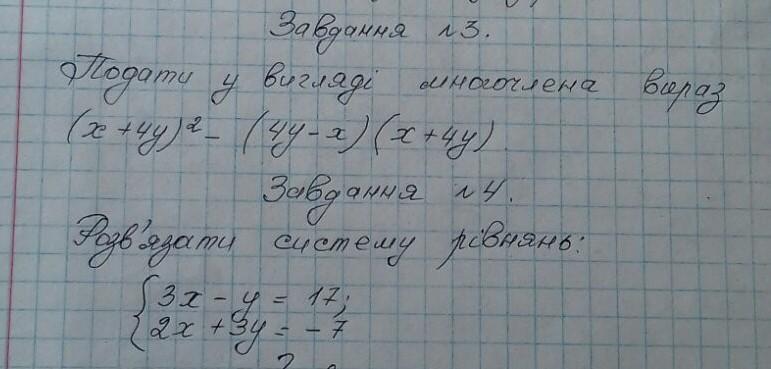 Завдання №3.
Подати у вигляді многочлена вираз
(x+4y)² - (4y-x)(x+4y)
Завдання №4.
Розв'язати систему рівнянь:
3x - y = 17;
2x + 3y = -7